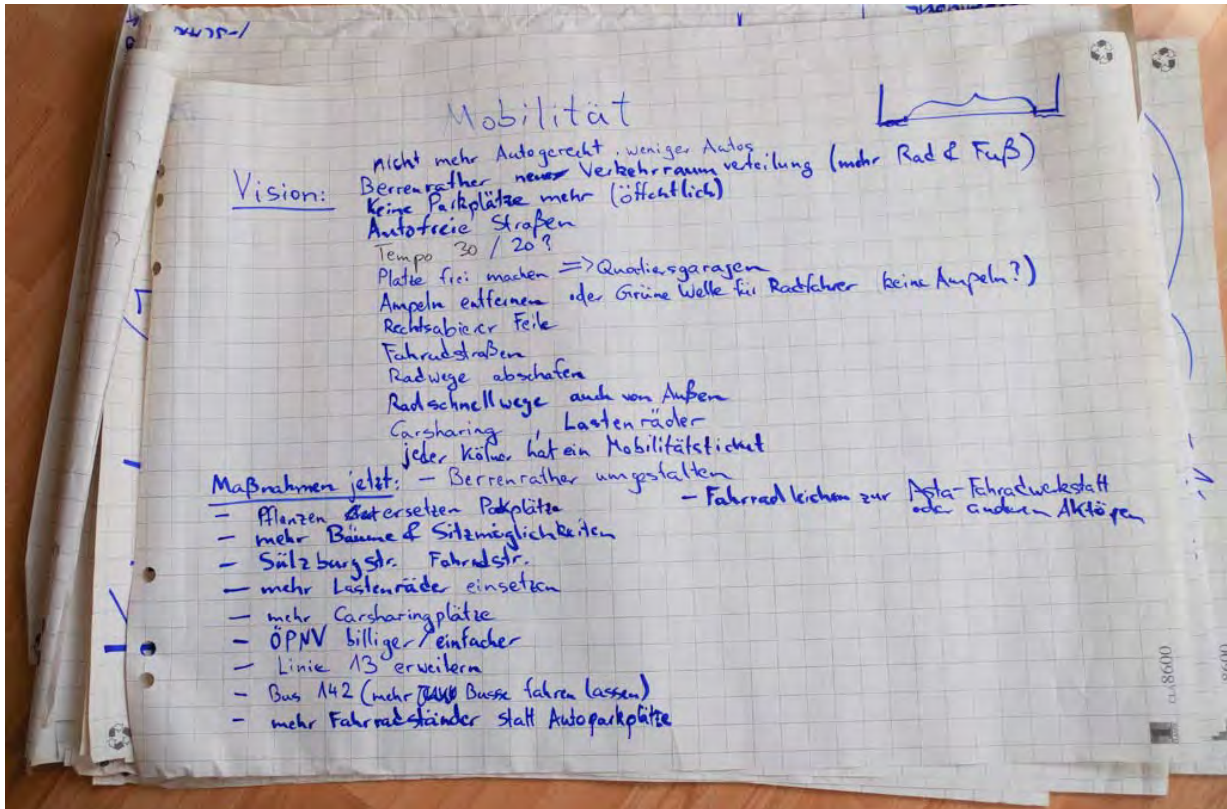 Mobilität
nicht mehr Autogerecht, weniger Autos
Vision: Berrenrather neue Verkehrraumverteilung (mehr Rad & Fuß)
Keine Parkplätze mehr (öffentlich)
Autofreie Straßen
Tempo 30 / 20?
Plätze frei machen => Quatiersgaragen
Ampeln entfernen oder Grüne Welle für Radfahrer keine Ampeln?)
Feile
Fahradstraßen
Radwege abschafen
Radschnellwege auch von Außen
Carsharing, Lastenräder
jeder Kölner hat ein Mobilitätsticket
Maßnahmen jetzt: - Berrenrather umgestalten
- Pflanzen ersetzen Pakplätze
- mehr Bäume & Sitzmöglichkeiten
- Sülzburgstr. Fahradstr.
- mehr Lastenräder einsetzen
- mehr Carsharingplätze
- ÖPNV billiger/einfacher
- Linie 13 erweitern
- Bus 142 (mehr Busse fahren lassen)
- mehr Fahrradständer statt Autoparkplätze
- Fahrradleichen zur Asta-Fahradwekstatt
oder anderen
CLA 8600
8600